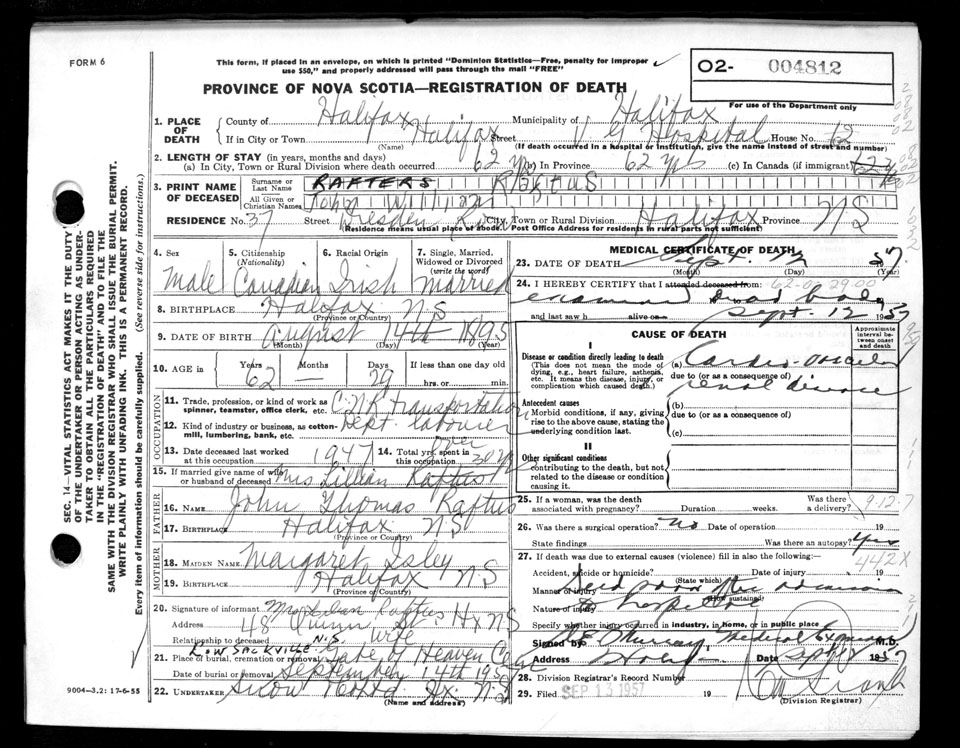 FORM 6
This form, if placed in an envelope, on which is printed "Dominion Statistics—Free, penalty for improper
use $50," and properly addressed will pass through the mail "FREE"
02- 004812
For use of the Department only
PROVINCE OF NOVA SCOTIA—REGISTRATION OF DEATH
1. PLACE OF DEATH
County of Halifax Municipality of Halifax
If in City or Town Halifax Street V G Hospital House No. 12
(Name) (If death occurred in a hospital or institution, give the name instead of street and number)
2. LENGTH OF STAY (in years, months and days)
(a) In City, Town or Rural Division where death occurred 62 yrs (b) In Province 62 yrs (c) In Canada (if immigrant)
3. PRINT NAME OF DECEASED
Surname or Last Name RAFTERS Raftus
All Given or Christian Names John William
RESIDENCE No. 37 Street Dresden Row City, Town or Rural Division Halifax NS
(Residence means usual place of abode. Post Office Address for residents in rural parts not sufficient)
4. Sex 5. Citizenship (Nationality) 6. Racial Origin 7. Single, Married, Widowed or Divorced (write the word)
Male Canadian Irish Married
8. BIRTHPLACE Halifax NS
(Province or Country)
9. DATE OF BIRTH August 14th 1895
(Month) (Day) (Year)
10. AGE in Years Months Days If less than one day
62 — 29 hrs. or min.
OCCUPATION
11. Trade, profession, or kind of work as spinner, teamster, office clerk, etc. C.N.R. Transportation
12. Kind of industry or business, as cotton-mill, lumbering, bank, etc. Dept. labourer
13. Date deceased last worked at this occupation 1947 14. Total yrs. spent in this occupation over 30 yrs
15. If married give name of wife or husband of deceased Mrs Lillian Raftus
FATHER
16. NAME John Thomas Raftus
17. BIRTHPLACE Halifax NS
(Province or Country)
MOTHER
18. MAIDEN NAME Margaret Isley
19. BIRTHPLACE Halifax NS
(Province or Country)
20. Signature of informant Mrs Lillian Raftus
Address 48 Quinn St Hx NS
Relationship to deceased wife
LOW SACKVILLE N.S
21. Place of burial, cremation or removal Gate of Heaven Cem
Date of burial or removal September 14th 1957
22. UNDERTAKER Snow Hx. N.S
(Name and address)
9004-3.2: 17-6-55
MEDICAL CERTIFICATE OF DEATH
23. DATE OF DEATH Sept. 12 1957
(Month) (Day) (Year)
24. I HEREBY CERTIFY that I attended deceased from: 62-0-29.00
examined dead body
and last saw h alive on Sept. 12 1957
CAUSE OF DEATH
Approximate interval between onset and death
I
Disease or condition directly leading to death
(This does not mean the mode of dying, e.g., heart failure, asthenia, etc. It means the disease, injury, or complication which caused death.)
(a) Cardio-vascular
due to (or as a consequence of) renal disease
Antecedent causes
Morbid conditions, if any, giving rise to the above cause, stating the underlying condition last.
(b)
due to (or as a consequence of)
(c)
II
Other significant conditions
contributing to the death, but not related to the disease or condition causing it.
25. If a woman, was the death associated with pregnancy? Duration weeks. Was there a delivery?
9.12.7
26. Was there a surgical operation? No Date of operation 19
State findings Was there an autopsy? Yes
442X
27. If death was due to external causes (violence) fill in also the following:—
Accident, suicide or homicide? Date of injury 19
(State which)
Manner of injury Dead soon after admission
(How sustained)
Nature of injury to hospital
Specify whether injury occurred in industry, in home, or in public place
Signed by Murray Medical Examiner M.D.
Address Date Sept 1957
28. Division Registrar's Record Number
29. Filed SEP 13 1957 19
(Division Registrar)
SEC. 14—VITAL STATISTICS ACT MAKES IT THE DUTY
OF THE UNDERTAKER OR PERSON ACTING AS UNDER-
TAKER TO OBTAIN ALL THE PARTICULARS REQUIRED
IN THE "REGISTRATION OF DEATH" AND TO FILE THE
SAME WITH THE DIVISION REGISTRAR WHO SHALL ISSUE THE BURIAL PERMIT.
WRITE PLAINLY WITH UNFADING INK. THIS IS A PERMANENT RECORD.
Every item of information should be carefully supplied. (See reverse side for instructions.)